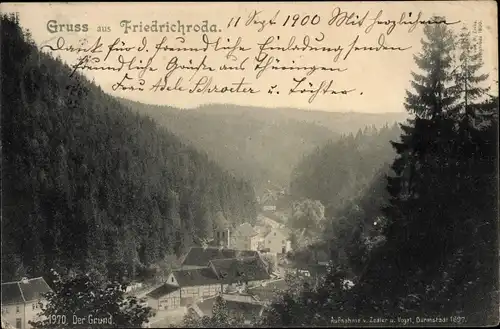 Gruss aus Friedrichroda. 11 Sept 1900 Mit herzlichem
Dank für d. freundliche Einladung senden
freundliche Grüße aus Thüringen
Frau Adele Schroeter u. Tochter.
1970. Der Grund.
Aufnahme v. Zedler u. Vogel, Darmstadt 1897.